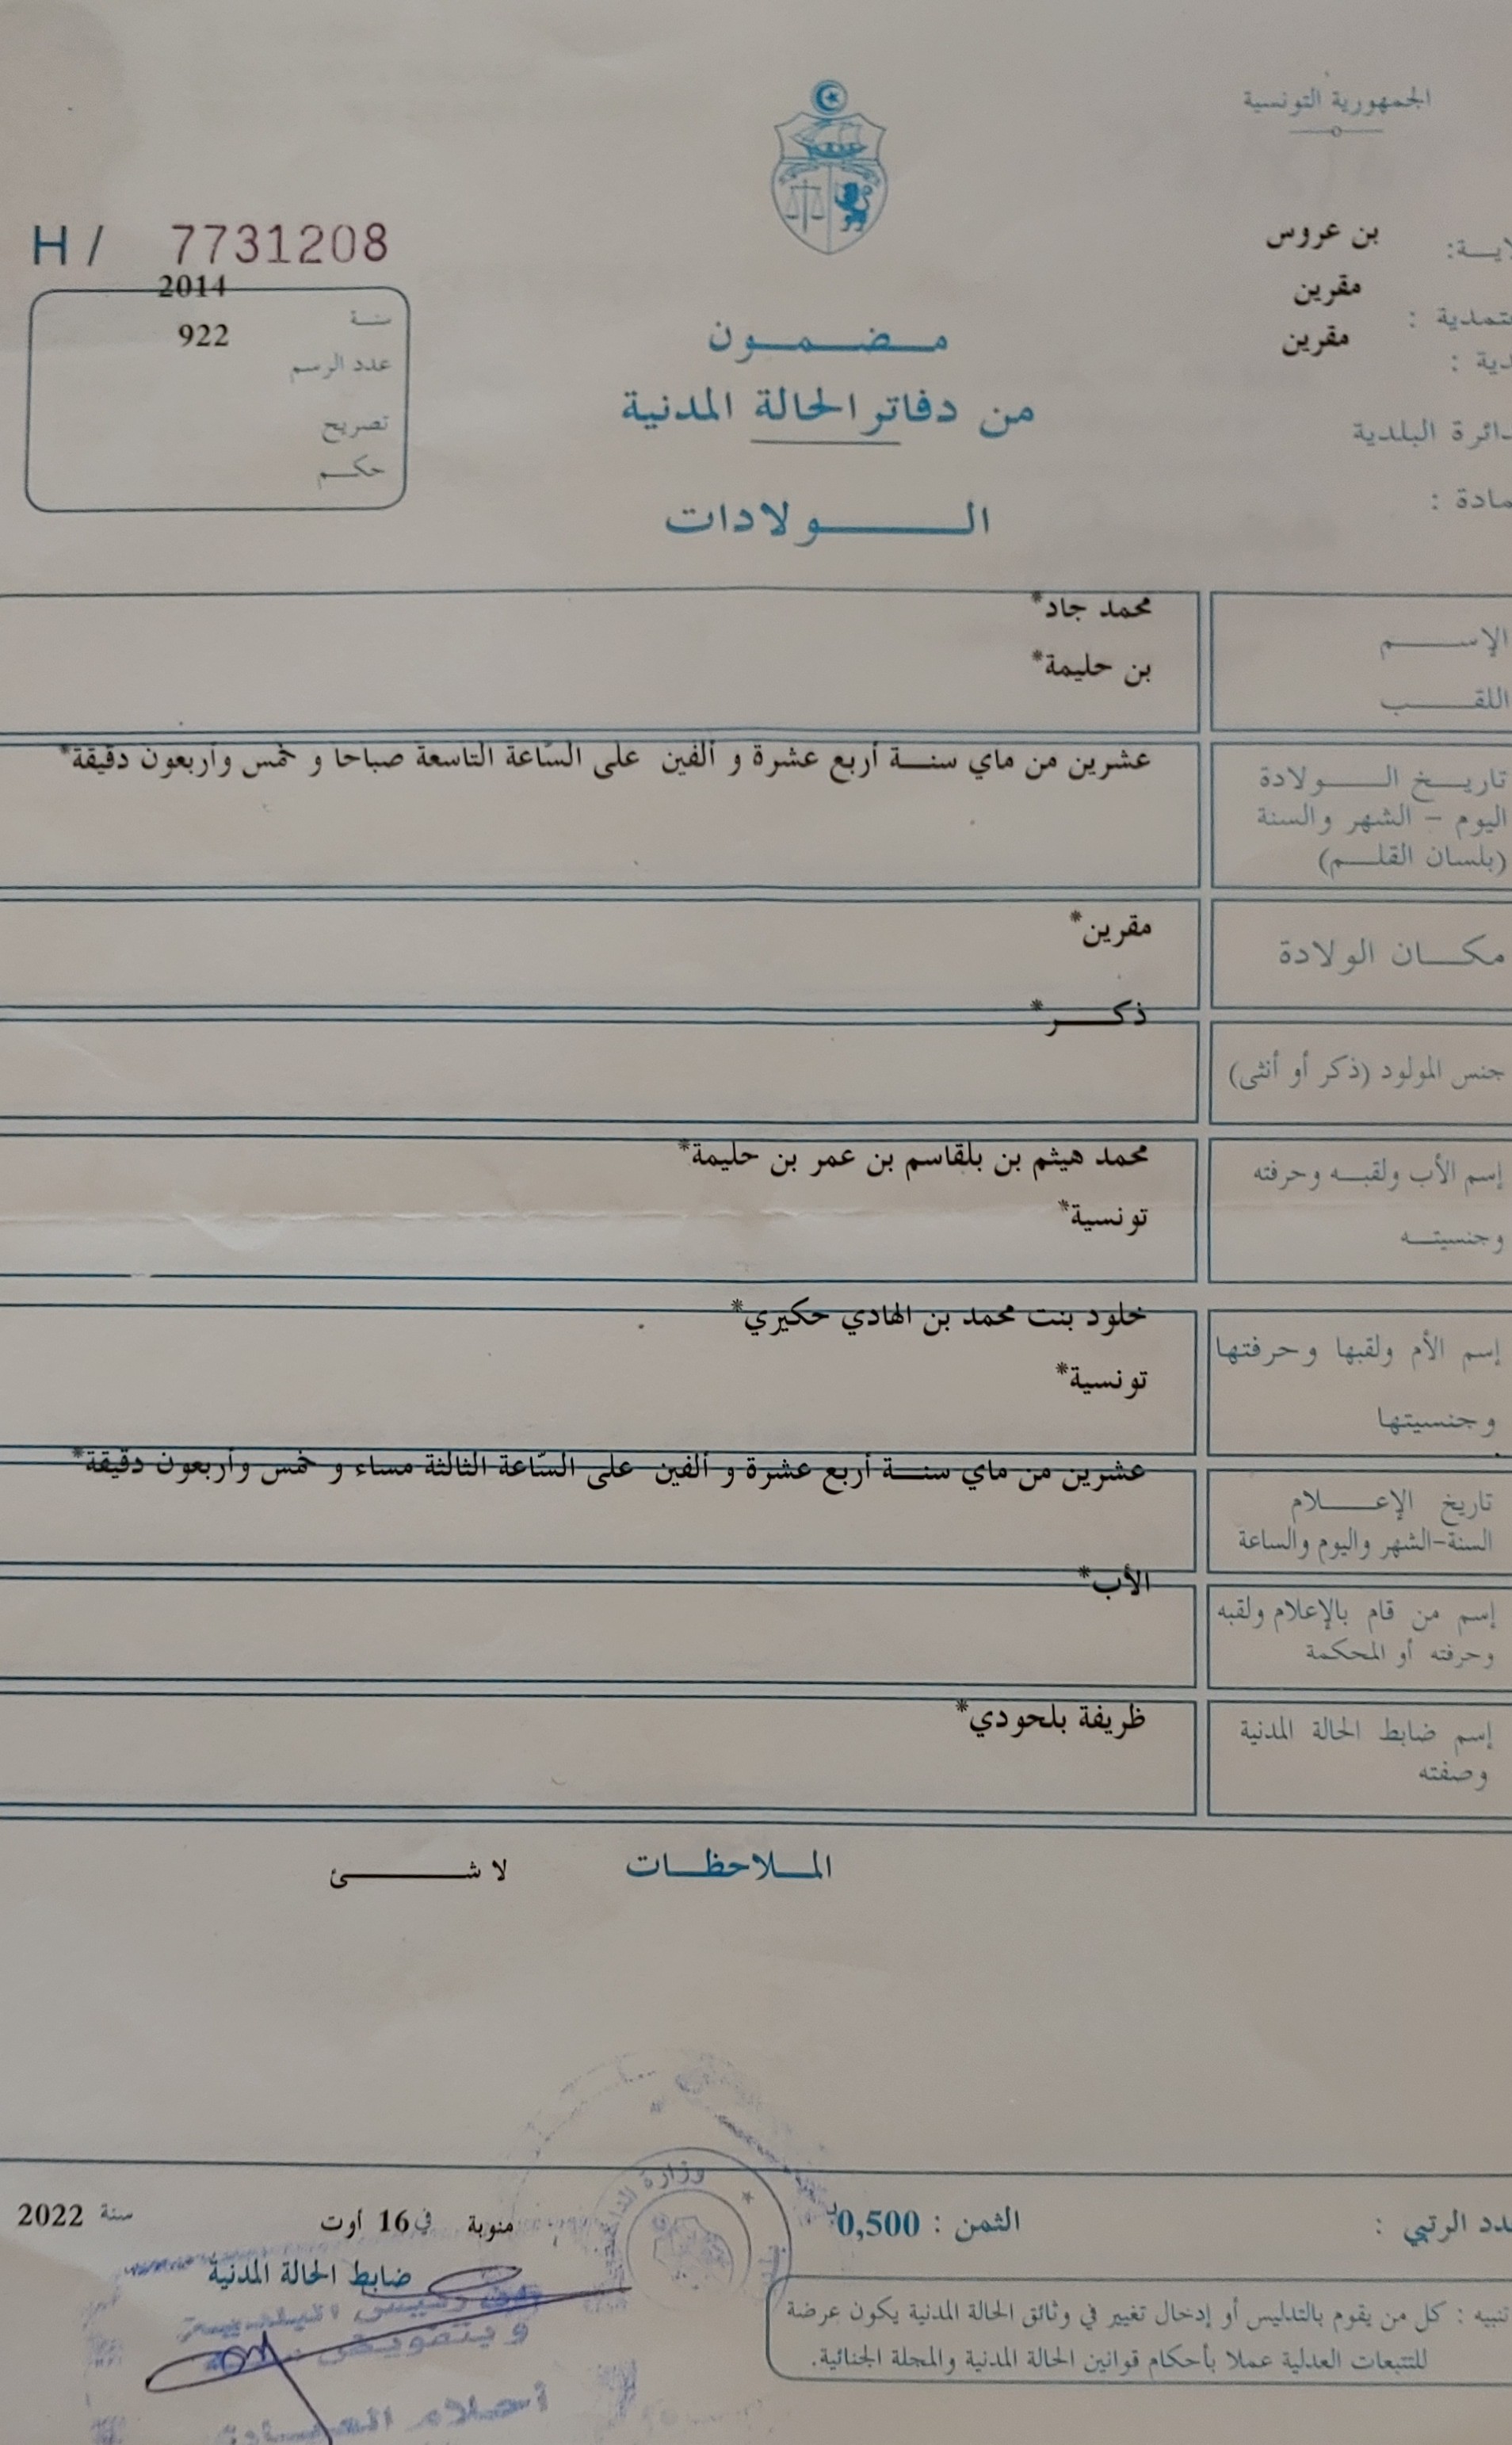 الجمهورية التونسية
بن عروس
H / 7731208
مقرين
2014
سنة
922
مقرين
عدد الرسم
تصريح
حكم
مضمون
من دفاتر الحالة المدنية
البلدية
الولادات
الإسم
محمد جاد*
اللقب
بن حليمة*
تاريخ الولادة
عشرين من ماي سنة أربع عشرة و ألفين على السّاعة التاسعة صباحا و خمس وأربعون دقيقة*
اليوم – الشهر والسنة
(بلسان القلم)
مكان الولادة
مقرين*
جنس المولود (ذكر أو أنثى)
ذكر*
إسم الأب ولقبه وحرفته
محمد هيثم بن بلقاسم بن عمر بن حليمة*
وجنسيته
تونسية*
إسم الأم ولقبها وحرفتها
خلود بنت محمد بن الهادي حكيري*
وجنسيتها
تونسية*
تاريخ الإعلام
عشرين من ماي سنة أربع عشرة و ألفين على السّاعة الثالثة مساء و خمس وأربعون دقيقة*
السنة-الشهر واليوم والساعة
إسم من قام بالإعلام ولقبه
الأب*
وحرفته أو المحكمة
إسم ضابط الحالة المدنية
ظريفة بلحودي*
وصفته
الملاحظات لا شئ
الرتبي :
الثمن : 0,500
منوبة في 16 أوت سنة 2022
ضابط الحالة المدنية
وزارة
وبتفويض
أحلام
تنبيه : كل من يقوم بالتدليس أو إدخال تغيير في وثائق الحالة المدنية يكون عرضة
للتتبعات العدلية عملا بأحكام قوانين الحالة المدنية والمجلة الجنائية.